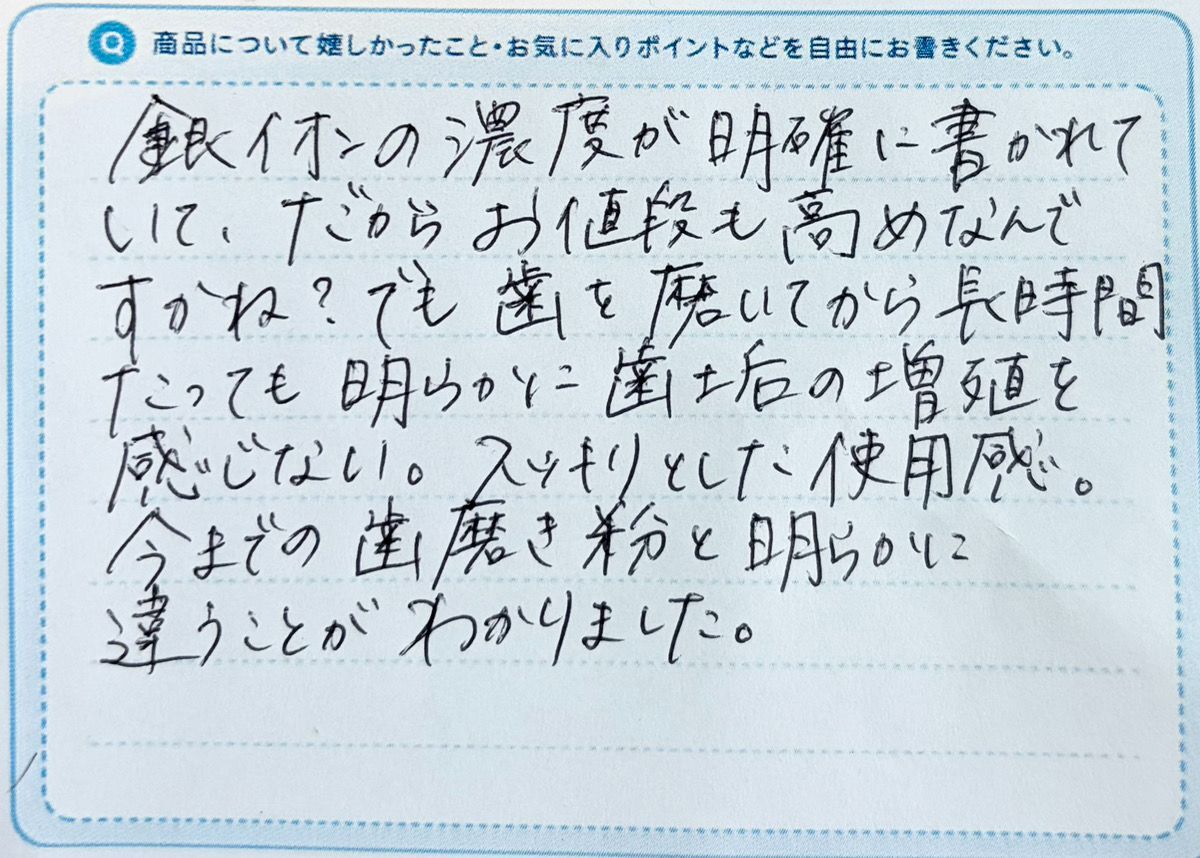 Q 商品について嬉しかったこと・お気に入りポイントなどを自由にお書きください。
銀イオンの濃度が明確に書かれて
いて、だからお値段も高めなんで
すかね?でも歯を磨いてから長時間
たっても明らかに歯垢の増殖を
感じない。スッキリとした使用感。
今までの歯磨き粉と明らかに
違うことがわかりました。